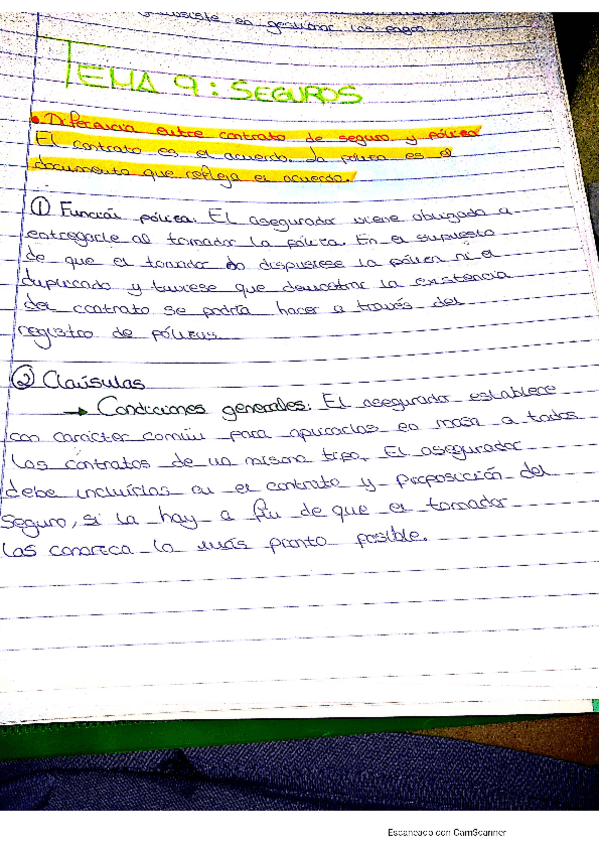 consiste en gestionar los
TEMA 9: SEGUROS
• Diferencia entre contrato de seguro y póliza
El contrato es el acuerdo. La póliza es el
documento que refleja el acuerdo.
① Función póliza: El asegurador viene obligado a
entregarle al tomador la póliza. En el supuesto
de que el tomador no dispusiese la póliza ni el
duplicado y tuviese que demostrar la existencia
del contrato se podría hacer a través del
registro de pólizas
② Claúsulas
→ Condiciones generales: El asegurador establece
con carácter común para aplicarlas en masa a todos
los contratos de un mismo tipo. El asegurador
debe incluírlas en el contrato y proposición del
seguro, si la hay a fin de que el tomador
las conozca lo más pronto posible.
Escaneado con CamScanner